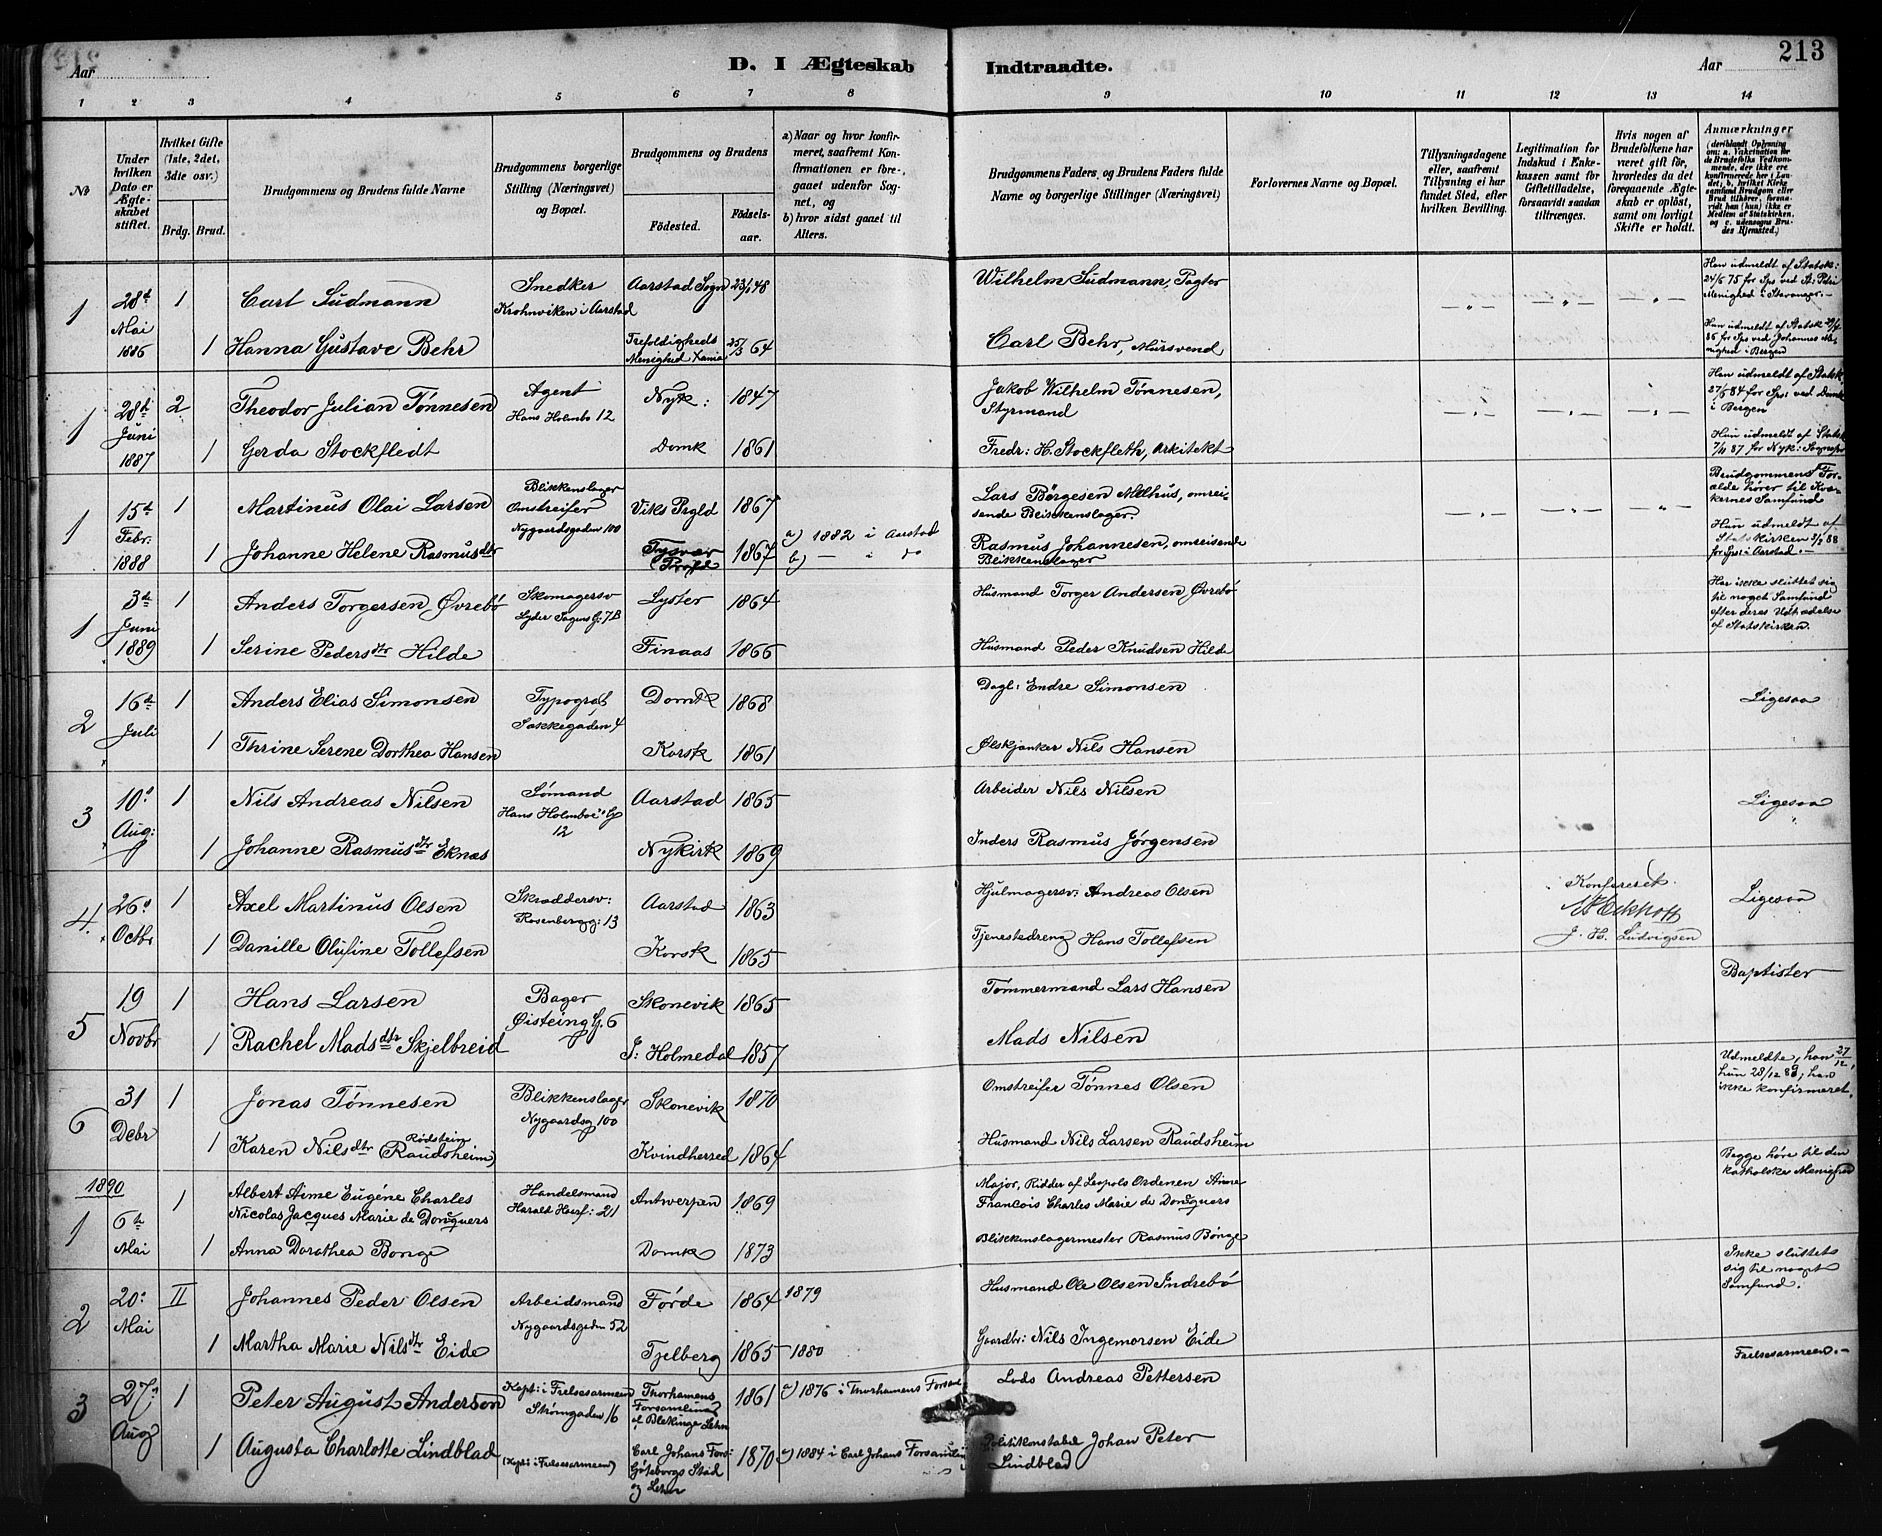 213
Aar
D. I Ægteskab Indtraadte.
Aar
1 2 3 4 5 6 7 8 9 10 11 12 13 14
No
Under hvilken Dato er Ægteskabet stiftet.
Hvilket Gifte (1ste, 2det, 3die osv.)
Brdg. Brud.
Brudgommens og Brudens fulde Navne
Brudgommens borgerlige Stilling (Næringsvei) og Bopæl.
Brudgommens og Brudens
Fødested.
Fødselsaar.
a) Naar og hvor konfirmeret, saafremt Konfirmationen er foregaaet udenfor Sognet, og
b) hvor sidst gaaet til Alters.
Brudgommens Faders og Brudens Faders fulde Navne og borgerlige Stillinger (Næringsvei)
Forlovernes Navne og Bopæl.
Tillysningsdagene eller, saafremt Tillysning ei har fundet Sted, efter hvilken Bevilling.
Legitimation for Indskud i Enkekassen samt for Giftetilladelse, forsaavidt saadan tiltrænges.
Hvis nogen af Brudefolkene har været gift før, hvorledes da det foregaaende Ægteskab er opløst, samt om lovligt Skifte er holdt.
Anmærkninger (deriblandt Oplysning om: a. Vakcination for de Brudefolks Vedkommende, der ikke ere konfirmerede her i Landet, b. hvilket Kirkesamfund Brudgom eller Brud tilhører, forsaavidt han (hun) ikke er Medlem af Statskirken, og c. udensogns Brudes Hjemsted.)
1 28de Mai 1886 1 Carl Sudmann Snedker Krohnviken i Aarstad Aarstad Sogn 23/1 48 Wilhelm Sudmann, Pagter Han udmeldt af Statsk: 24/6 75 for Sps ved St: Petri Menighed i Stavanger.
1 Hanna Gustave Behr Trefoldigheds Menighed Xania 25/3 64 Carl Behr, Mursvend Hun udmeldt af Statsk 86 for Sps ved Johannes Menighed i Bergen
1 28de Juni 1887 2 Theodor Julian Tønnesen Agent Hans Holmbo 12 Nyk: 1847 Jakob Wilhelm Tønnesen, Styrmand Han udmeldt af Statsk. 27/5 84 for Sps: ved Domk i Bergen
1 Gerda Stockfledt Domk 1861 Fredr: H. Stockfleth, Arkitekt Hun udmeldt af Statsk 7/11 87 for Nyk: Sognepr
1 15de Febr. 1888 1 Martinus Olai Larsen Blikkenslager Omstreifer Nygaardsgaden 100 Viks Prgld 1867 Lars Børgesen Mælhus, omreisende Blikkenslager. Brudgommens Forælde hører til Kvækernes Samfund
1 Johanne Helene Rasmusdtr Tysvær Prgld 1867 a) 1882 i Aarstad b) — i do Rasmus Johannesen, omreisende Blikkenslager Hun udmeldt af Statskirken 3/2 88 for Sps: i Aarstad.
1 3de Juni 1889 1 Anders Torgersen Øvrebø Skomagersv Lyder Sagens G: 7B Lyster 1864 Husmand Torger Andersen Øvrebø Har ikke sluttet sig til noget Samfund efter deres Udtrædelse af Statskirken.
1 Serine Pedersdtr Hilde Finaas 1866 Husmand Peder Knudsen Hilde
2 16de Juli 1 Anders Elias Simonsen Typograf Sakkegaden 4 Domk 1868 Dagl: Endre Simonsen Ligesaa
1 Thrine Serene Dorthea Hansen Korsk 1861 Ølskjænker Nils Hansen
3 10de Aug: 1 Nils Andreas Nilsen Sømand Hans Holmboes G 12 Aarstad 1865 Arbeider Nils Nilsen Ligesaa
1 Johanne Rasmusdtr Eknæs Nykirk 1869 Inders Rasmus Jørgensen
4. 26de Octbr 1 Axel Martinus Olsen Skræddersv: Rosenbergg: 13 Aarstad 1863 Hjulmagersv: Andreas Olsen Konfereret. Eckhoff J. H. Ludvigsen Ligesaa
1 Danille Olufine Tollefsen Korsk 1865 Tjenestedreng Hans Tollefsen
5 19 Novbr 1 Hans Larsen Bager Øisteins G. 6 Skonevik 1865 Tømmermand Lars Hansen Baptister
1 Rachel Madsdtr Skjelbreid I: Holmedal 1857 Mads Nilsen
6 31 Debr 1 Jonas Tønnesen Blikkenslager Nygaardsg 100 Skonevik 1870 Omstreifer Tønnes Olsen Udmeldte, han 27/12, hun 28/12 89; han ikke konfirmeret.
1 Karen Nilsdtr Rødstein (Raudsheim) Kvindherred 1864 Husmand Nils Larsen Raudsheim
1890
1 6te Mai 1 Albert Aime Eugéne Charles Nicolas Jacques Marie de Doncquers Handelsmand Harald Haarf: 21 Antwerpen 1869 Major, Ridder af Leopolds Ordenen Aime Francois Charles Marie de Doncquers Begge høre til den katholske Menighed
1 Anna Dorothea Bonge Domk 1873 Blikkenslagermester Rasmus Bønge
2 20de Mai II Johannes Peder Olsen Arbeidsmand Nygaardsgaden 52 Førde 1864 1879 Husmand Ole Olsen Indrebø Ikke sluttet sig til noget Samfund.
1 Martha Marie Nilsdtr Eide Fjelberg 1865 1880 Gaardbr: Nils Ingemorsen Eide
3 27de Aug 1 Peter August Anderson Kapt: i Frelsesarmeen Strømgaden 16 Thorhamens Forsamling af Blekinge Lehn 1861 a) 1876 i Thorhamens Forsaml Lods Andreas Pettersen Frelsesarmeen.
1 Augusta Charlotte Lindblad (Kapt: i Frelsesarmeen) Carl Johans Fors: Göteborgs Stad og Lehn 1870 a) 1884 i Carl Johans Forsamling Politikonstabel Johan Peter Lindblad